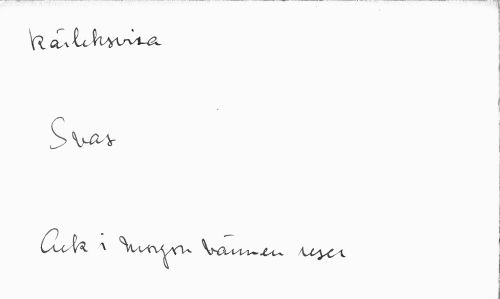 Kärleksvisa
Svar
Ack i morgon vännen reser